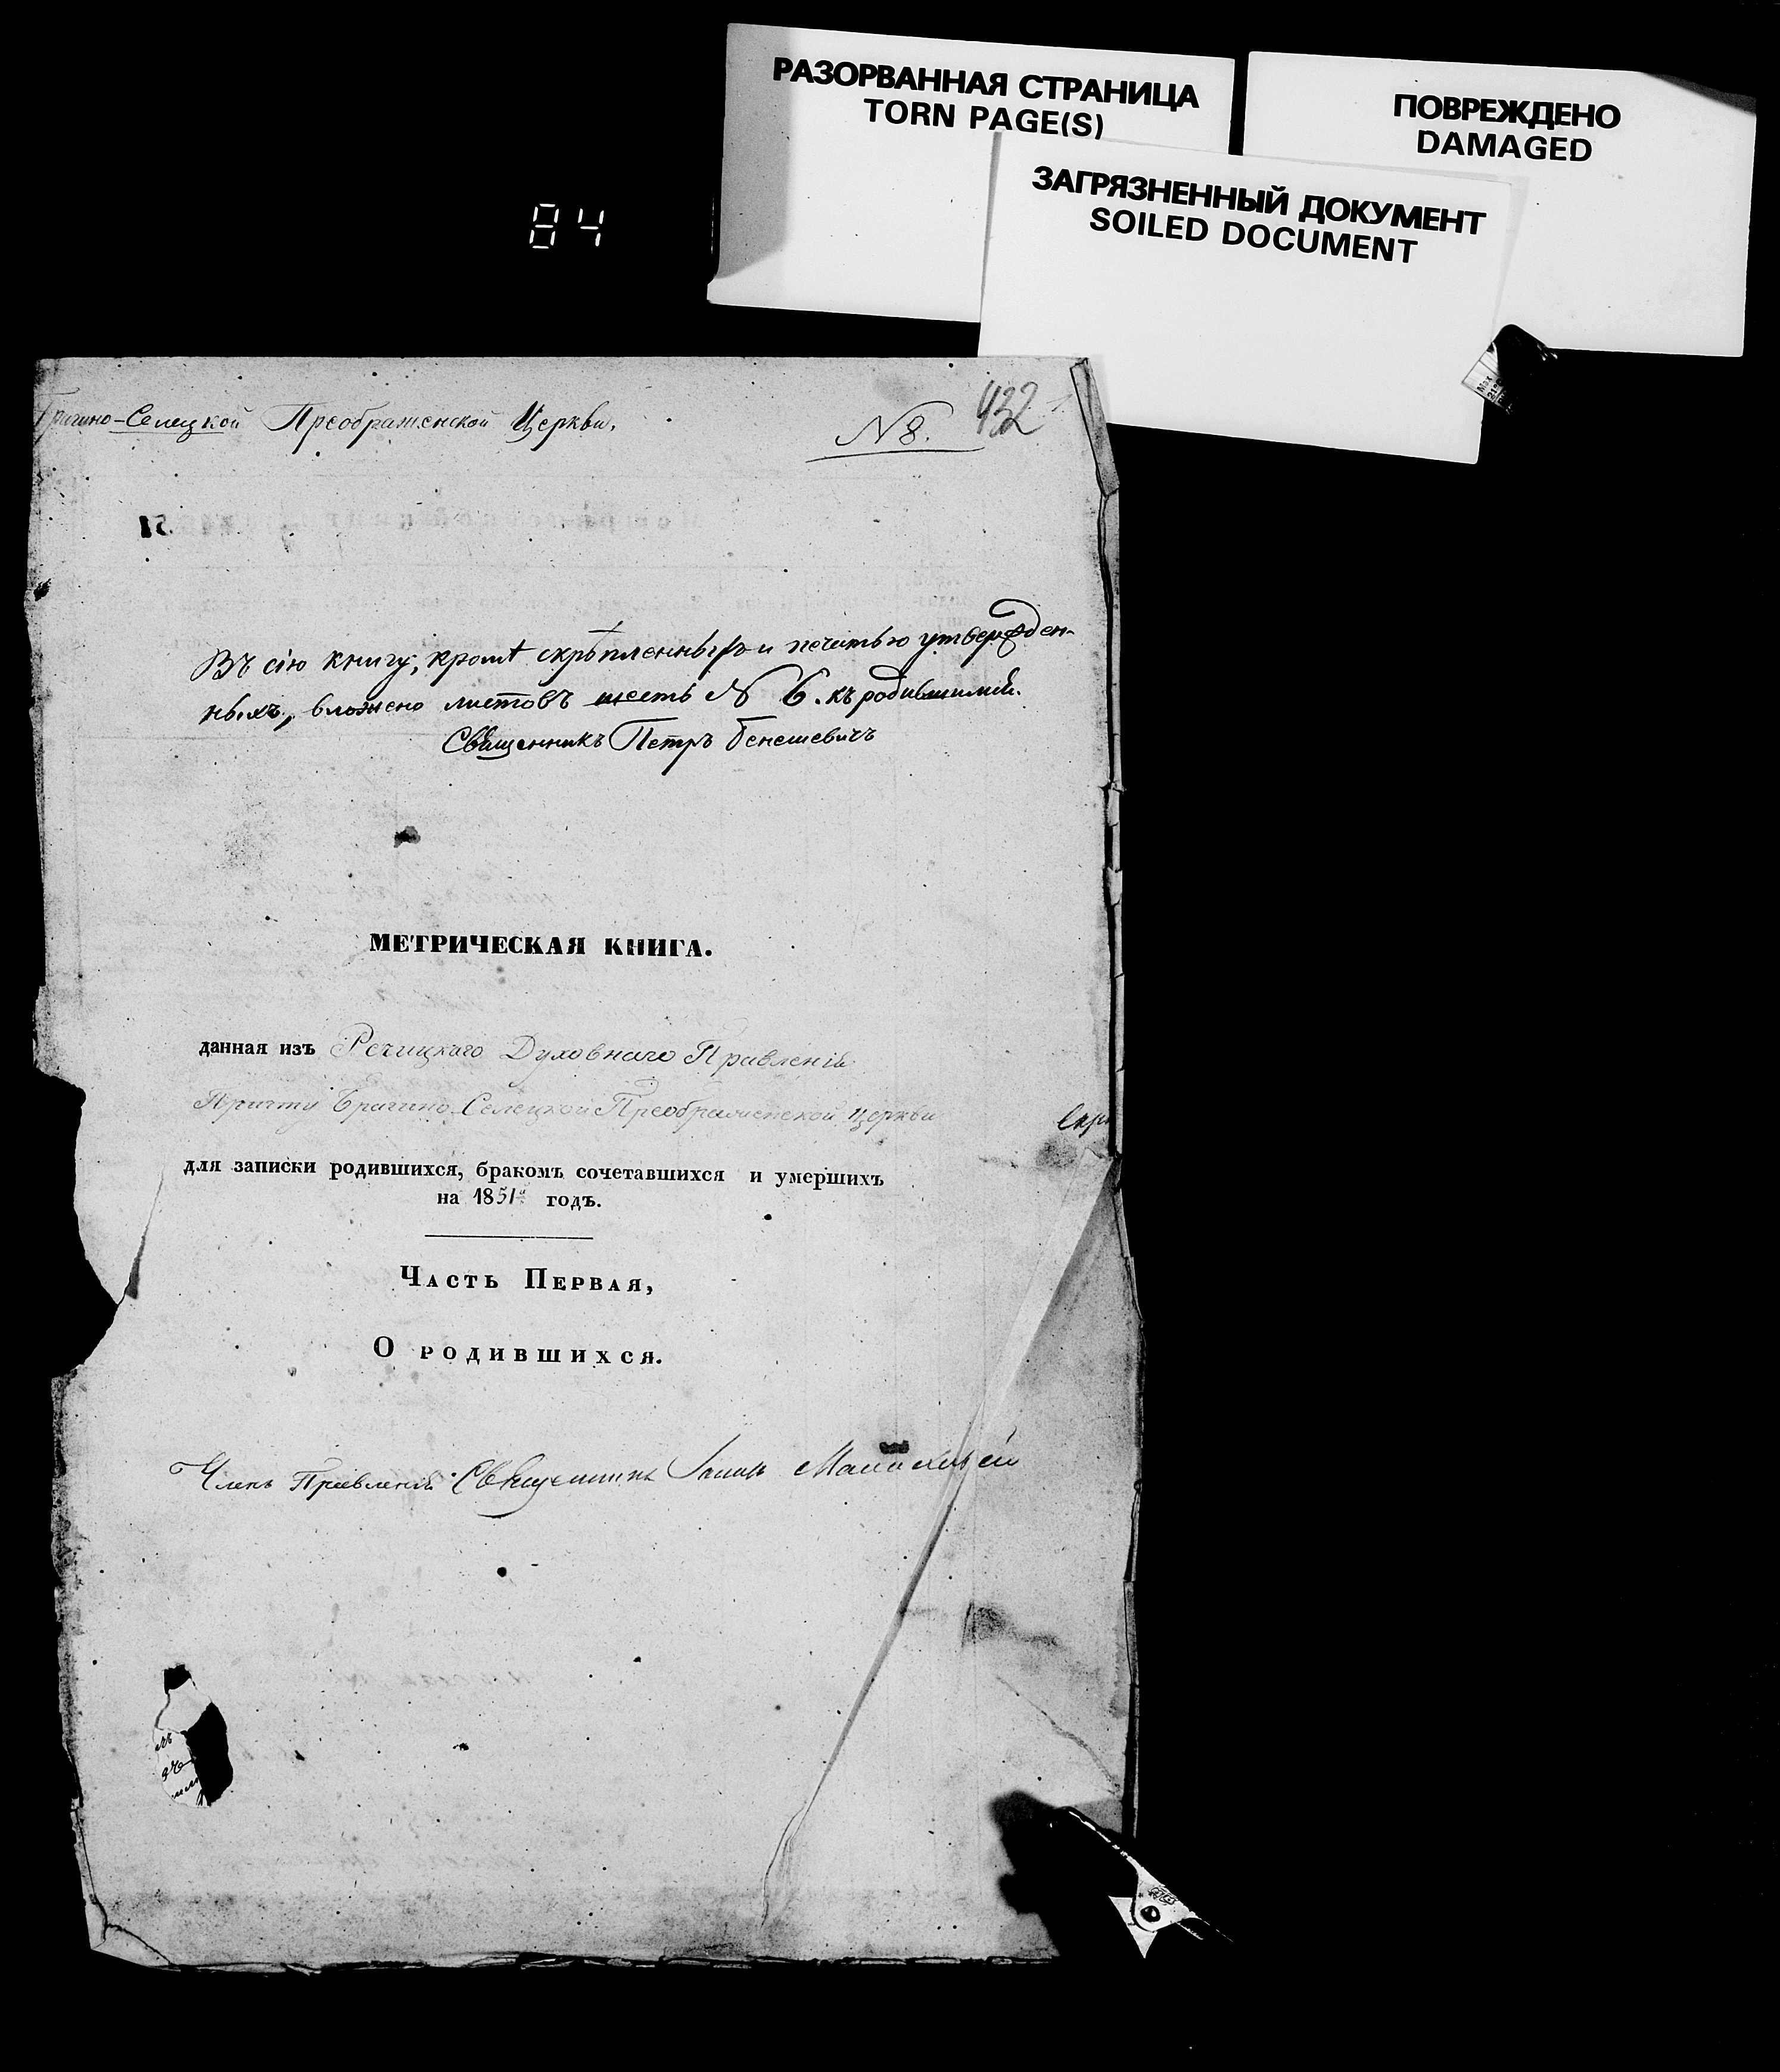 РАЗОРВАННАЯ СТРАНИЦА
TORN PAGE(S)
ПОВРЕЖДЕНО
DAMAGED
ЗАГРЯЗНЕННЫЙ ДОКУМЕНТ
SOILED DOCUMENT
84
Брагино-Селецкой Преображенской Церкви.
N 8.
432
Въ сію книгу, кромѣ скрѣпленныхъ и печатью утвержден-
ныхъ, вложено листовъ шесть N 6. къ родившимся.
Священникъ Петръ Бенешевичъ
МЕТРИЧЕСКАЯ КНИГА.
данная изъ Речицкаго Духовнаго Правленія
Причту Брагино-Селецкой Преображенской церкви
Скр
для записки родившихся, бракомъ сочетавшихся и умершихъ
на 1851й годъ.
Часть Первая,
О родившихся.
Членъ Правленія Священникъ